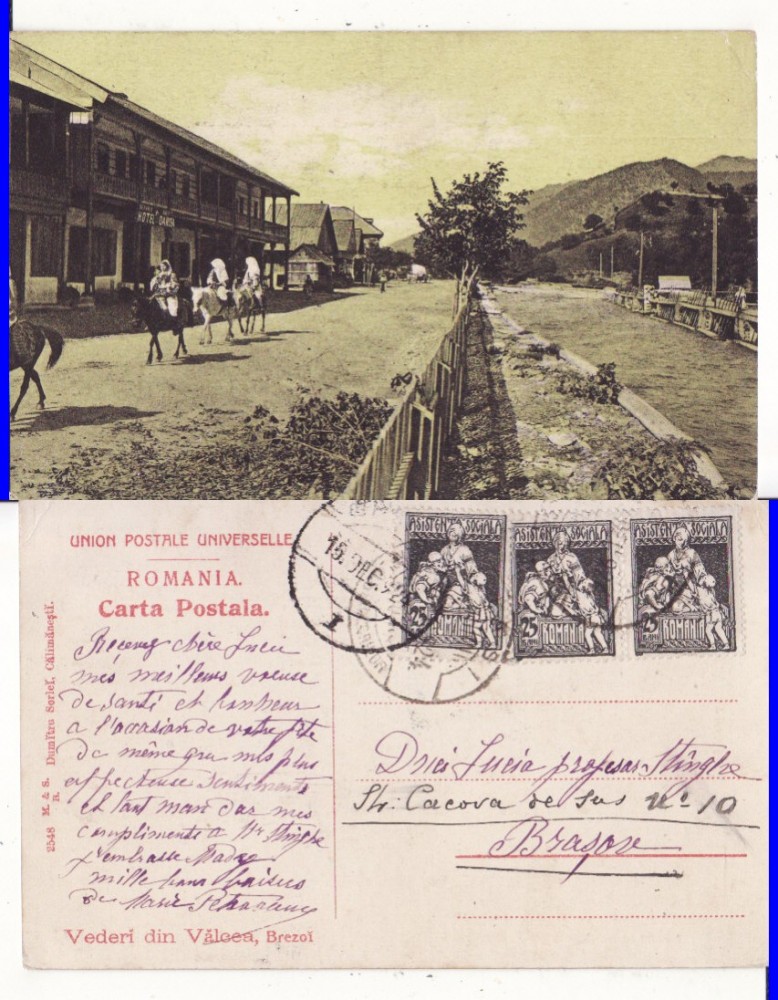 HOTEL DAMIAN
UNION POSTALE UNIVERSELLE
ROMANIA.
Carta Postala.
15. DEC. 92
I
ASISTENȚA SOCIALA
25 BANI
ROMANIA
ASISTENȚA SOCIALA
25 BANI
ROMANIA
ASISTENȚA SOCIALA
25 BANI
ROMANIA
2548 M. & S. Dumitru Serlef, Călimănești.
R.
Recevez chère Lucie
mes meilleurs voeuse
de santé et bonheur
a l'occasion de votre fête
de même que mes plus
affecteuse sentiments
et tant man dar mes
compliments a Mr Stinghe
j'embrasse Madre
mille bons baisers
de Marie
Dnei Lucia profesor Stinghe
Str. Cacova de Sus No 10
Brașov
Vederi din Vâlcea, Brezoĭ